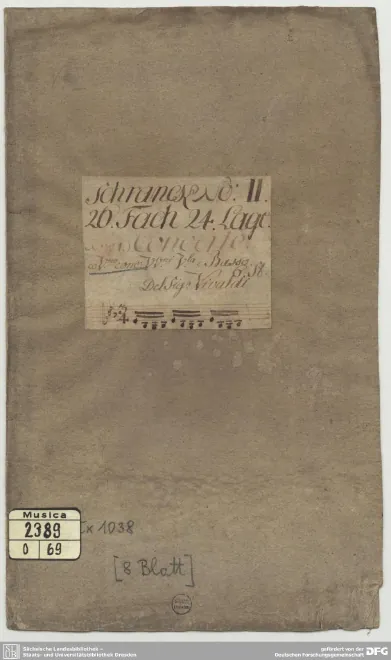 Schranck No: II.
20. Fach 24. Lage.
Concerto
co VV.ni Viola Basso
Del Sig.r Vivaldi
Musica
2389
O 69
Cx 1038
[8 Blatt]
Sächsische Landesbibliothek –
Staats- und Universitätsbibliothek Dresden
gefördert von der
Deutschen Forschungsgemeinschaft DFG